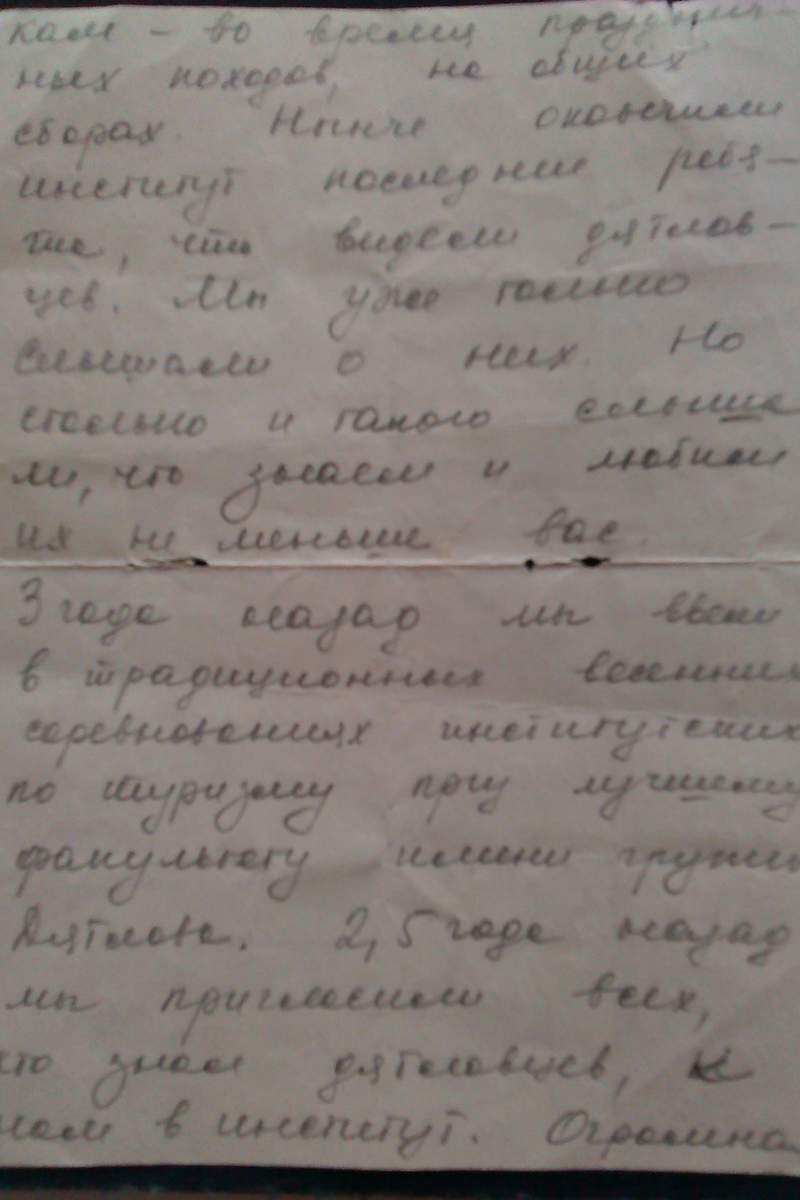 кам – во время празднич-
ных походов, на общих
сборах. Нынче окончили
институт последние ребя-
та, что видели дятлов-
цев. Мы уже только
слышали о них. Но
столько и такого слыша
ли, что знаем и любим
их не меньше вас.
3 года назад мы ввели
в традиционных весенних
соревнованиях институтских
по туризму приз лучшему
факультету имени группы
Дятлова. 2,5 года назад
мы пригласили всех,
кто знал дятловцев, к
нам в институт. Огромная